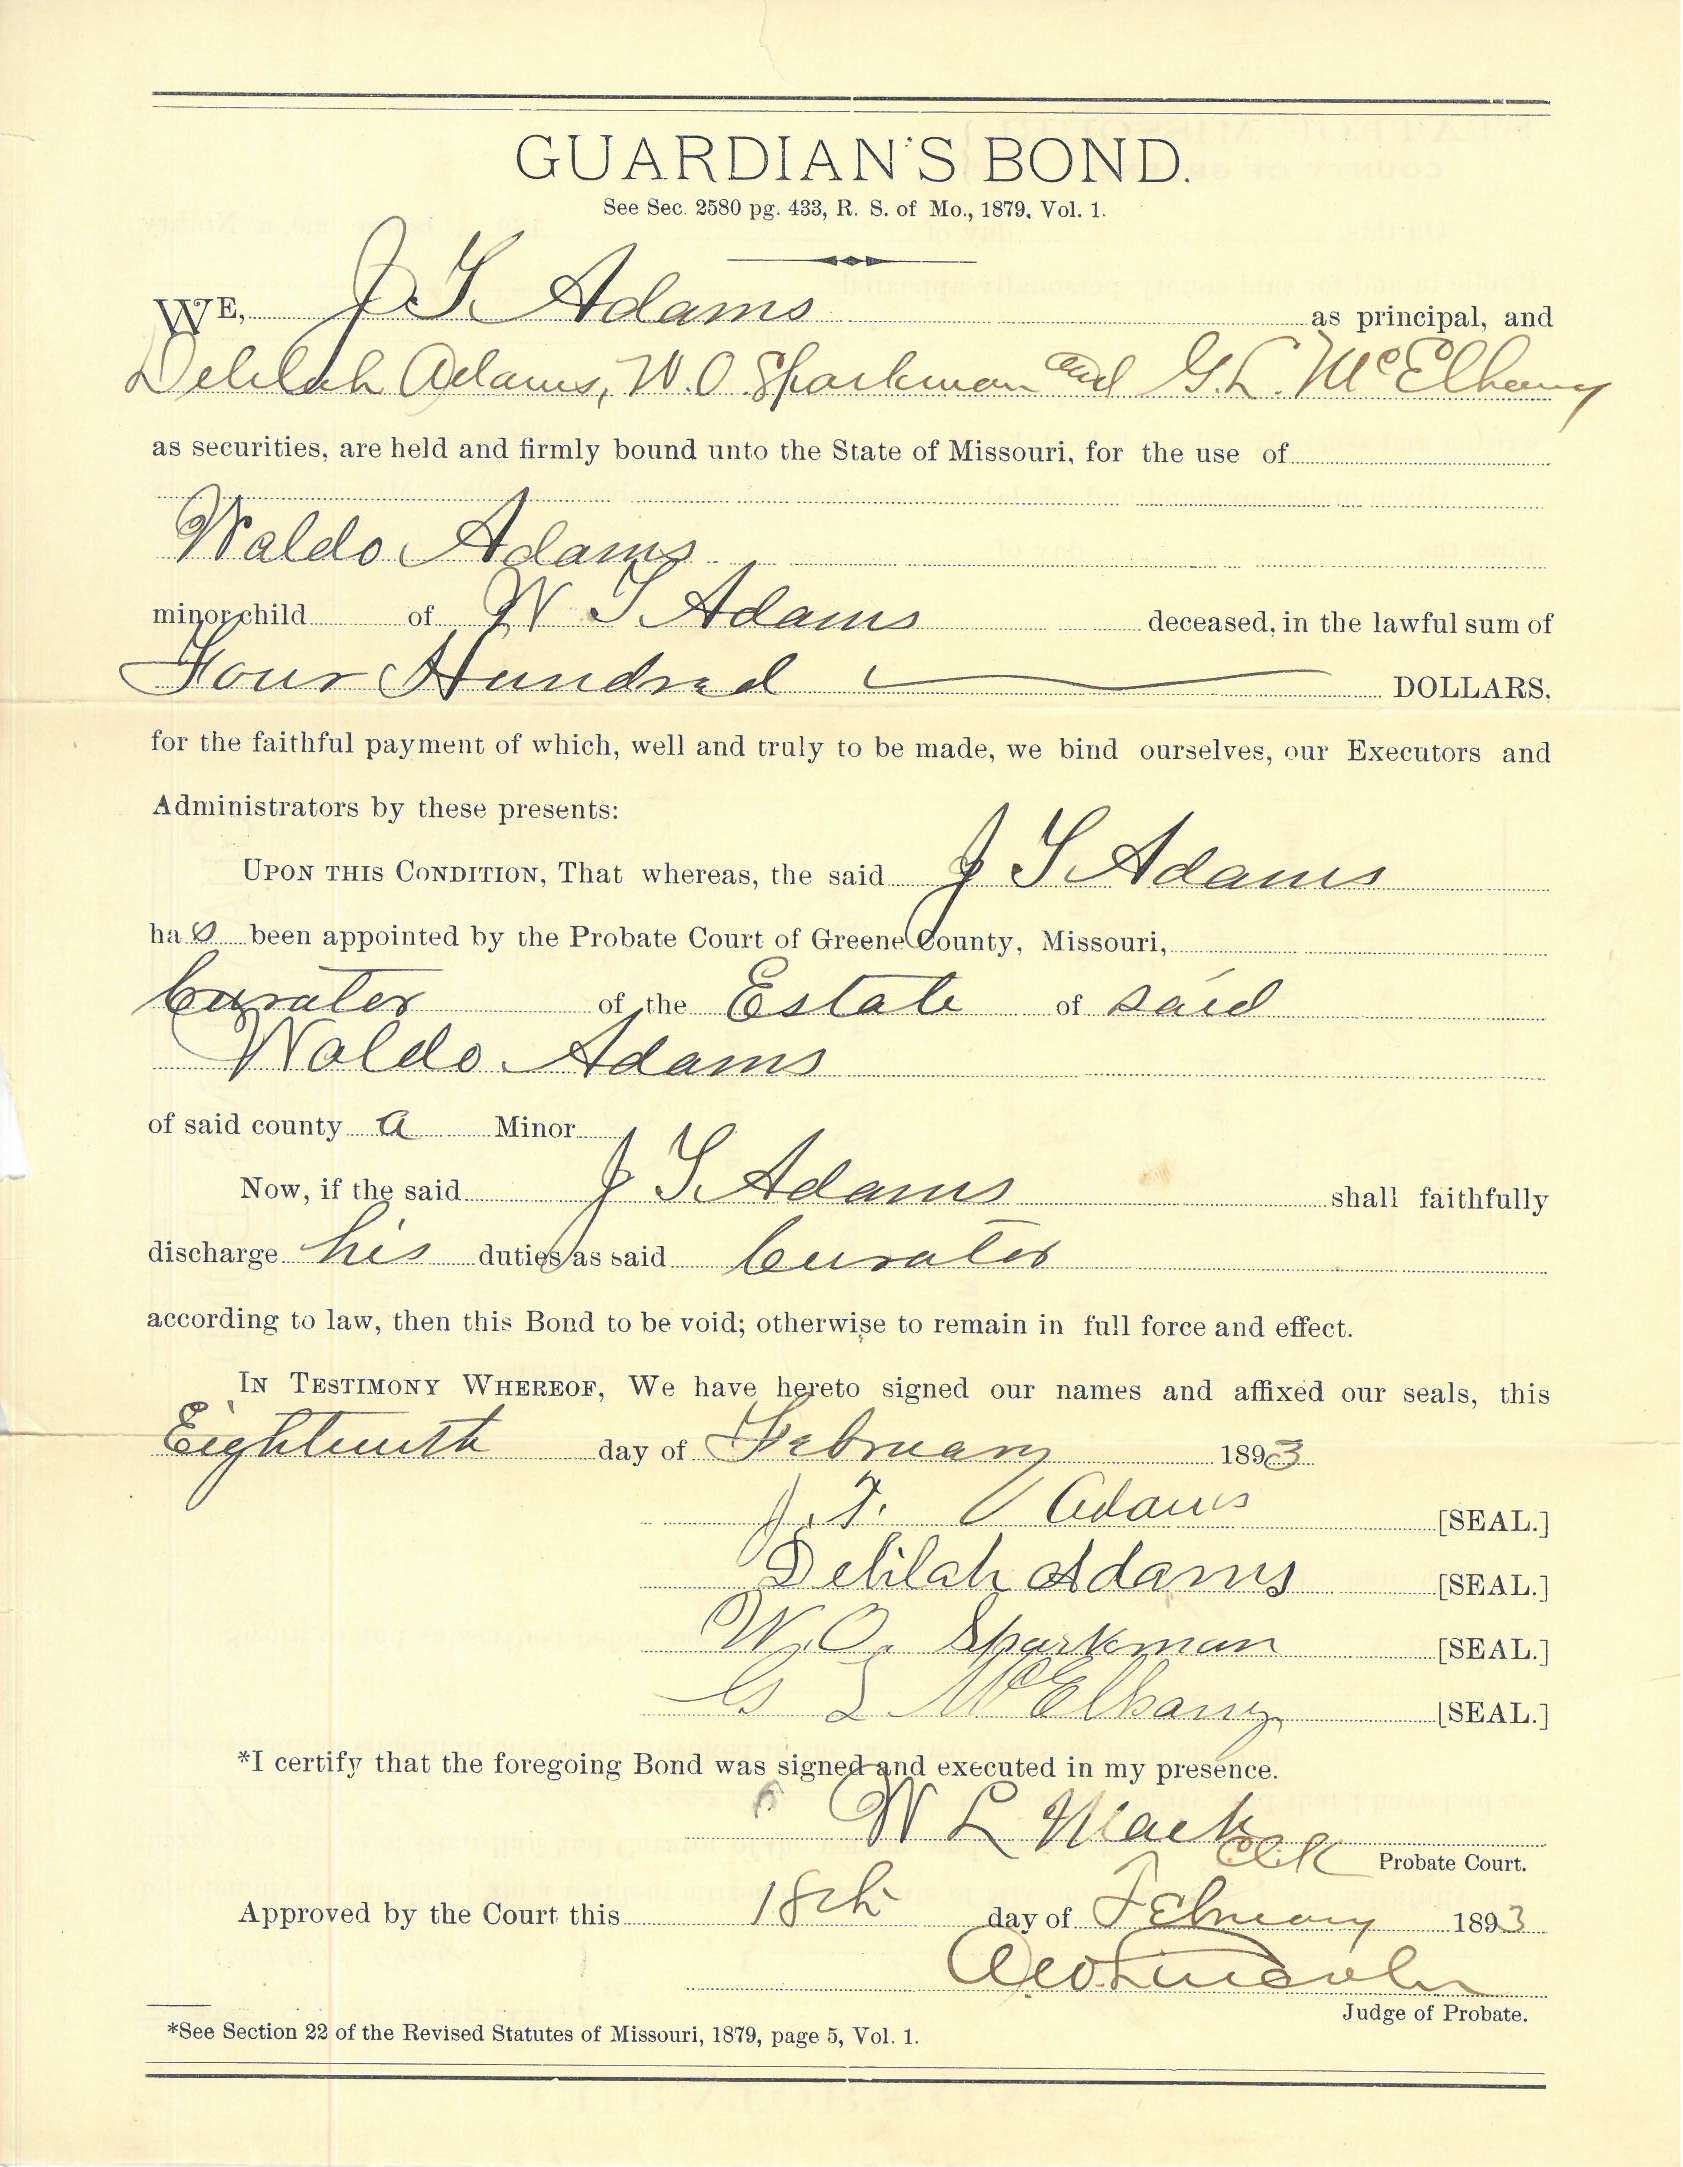 GUARDIAN'S BOND.
See Sec. 2580 pg. 433, R. S. of Mo., 1879, Vol. 1.
WE, J T Adams as principal, and
Delilah Adams, W. O. Sparkman and G. L. McElhany
as securities, are held and firmly bound unto the State of Missouri, for the use of
Waldo Adams
minor child of W T Adams deceased, in the lawful sum of
Four Hundred DOLLARS.
for the faithful payment of which, well and truly to be made, we bind ourselves, our Executors and
Administrators by these presents:
UPON THIS CONDITION, That whereas, the said J T Adams
has been appointed by the Probate Court of Greene County, Missouri,
Curator of the Estate of said
Waldo Adams
of said county a Minor
Now, if the said J T Adams shall faithfully
discharge his duties as said Curator
according to law, then this Bond to be void; otherwise to remain in full force and effect.
IN TESTIMONY WHEREOF, We have hereto signed our names and affixed our seals, this
Eighteenth day of February 1893
J. T. Adams [SEAL.]
Delilah Adams [SEAL.]
W. O. Sparkman [SEAL.]
G L McElhany [SEAL.]
*I certify that the foregoing Bond was signed and executed in my presence.
W L Mack
Clk Probate Court.
Approved by the Court this 18th day of February 1893
Lincoln
Judge of Probate.
*See Section 22 of the Revised Statutes of Missouri, 1879, page 5, Vol. 1.